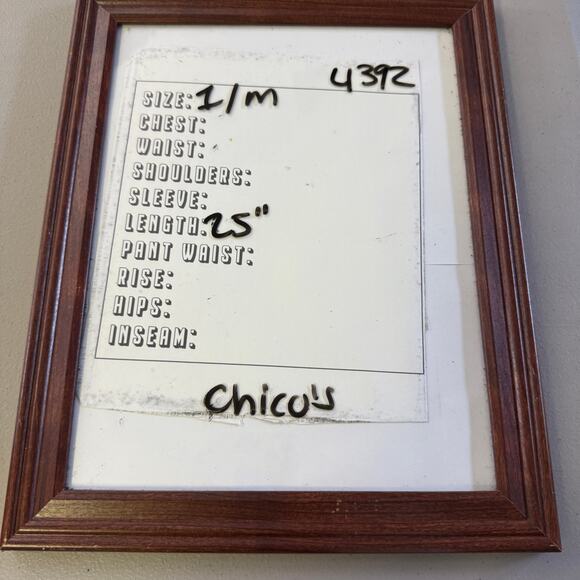 4392
SIZE: 1/m
CHEST:
WAIST:
SHOULDERS:
SLEEVE:
LENGTH: 25"
PANT WAIST:
RISE:
HIPS:
INSEAM:
Chico's